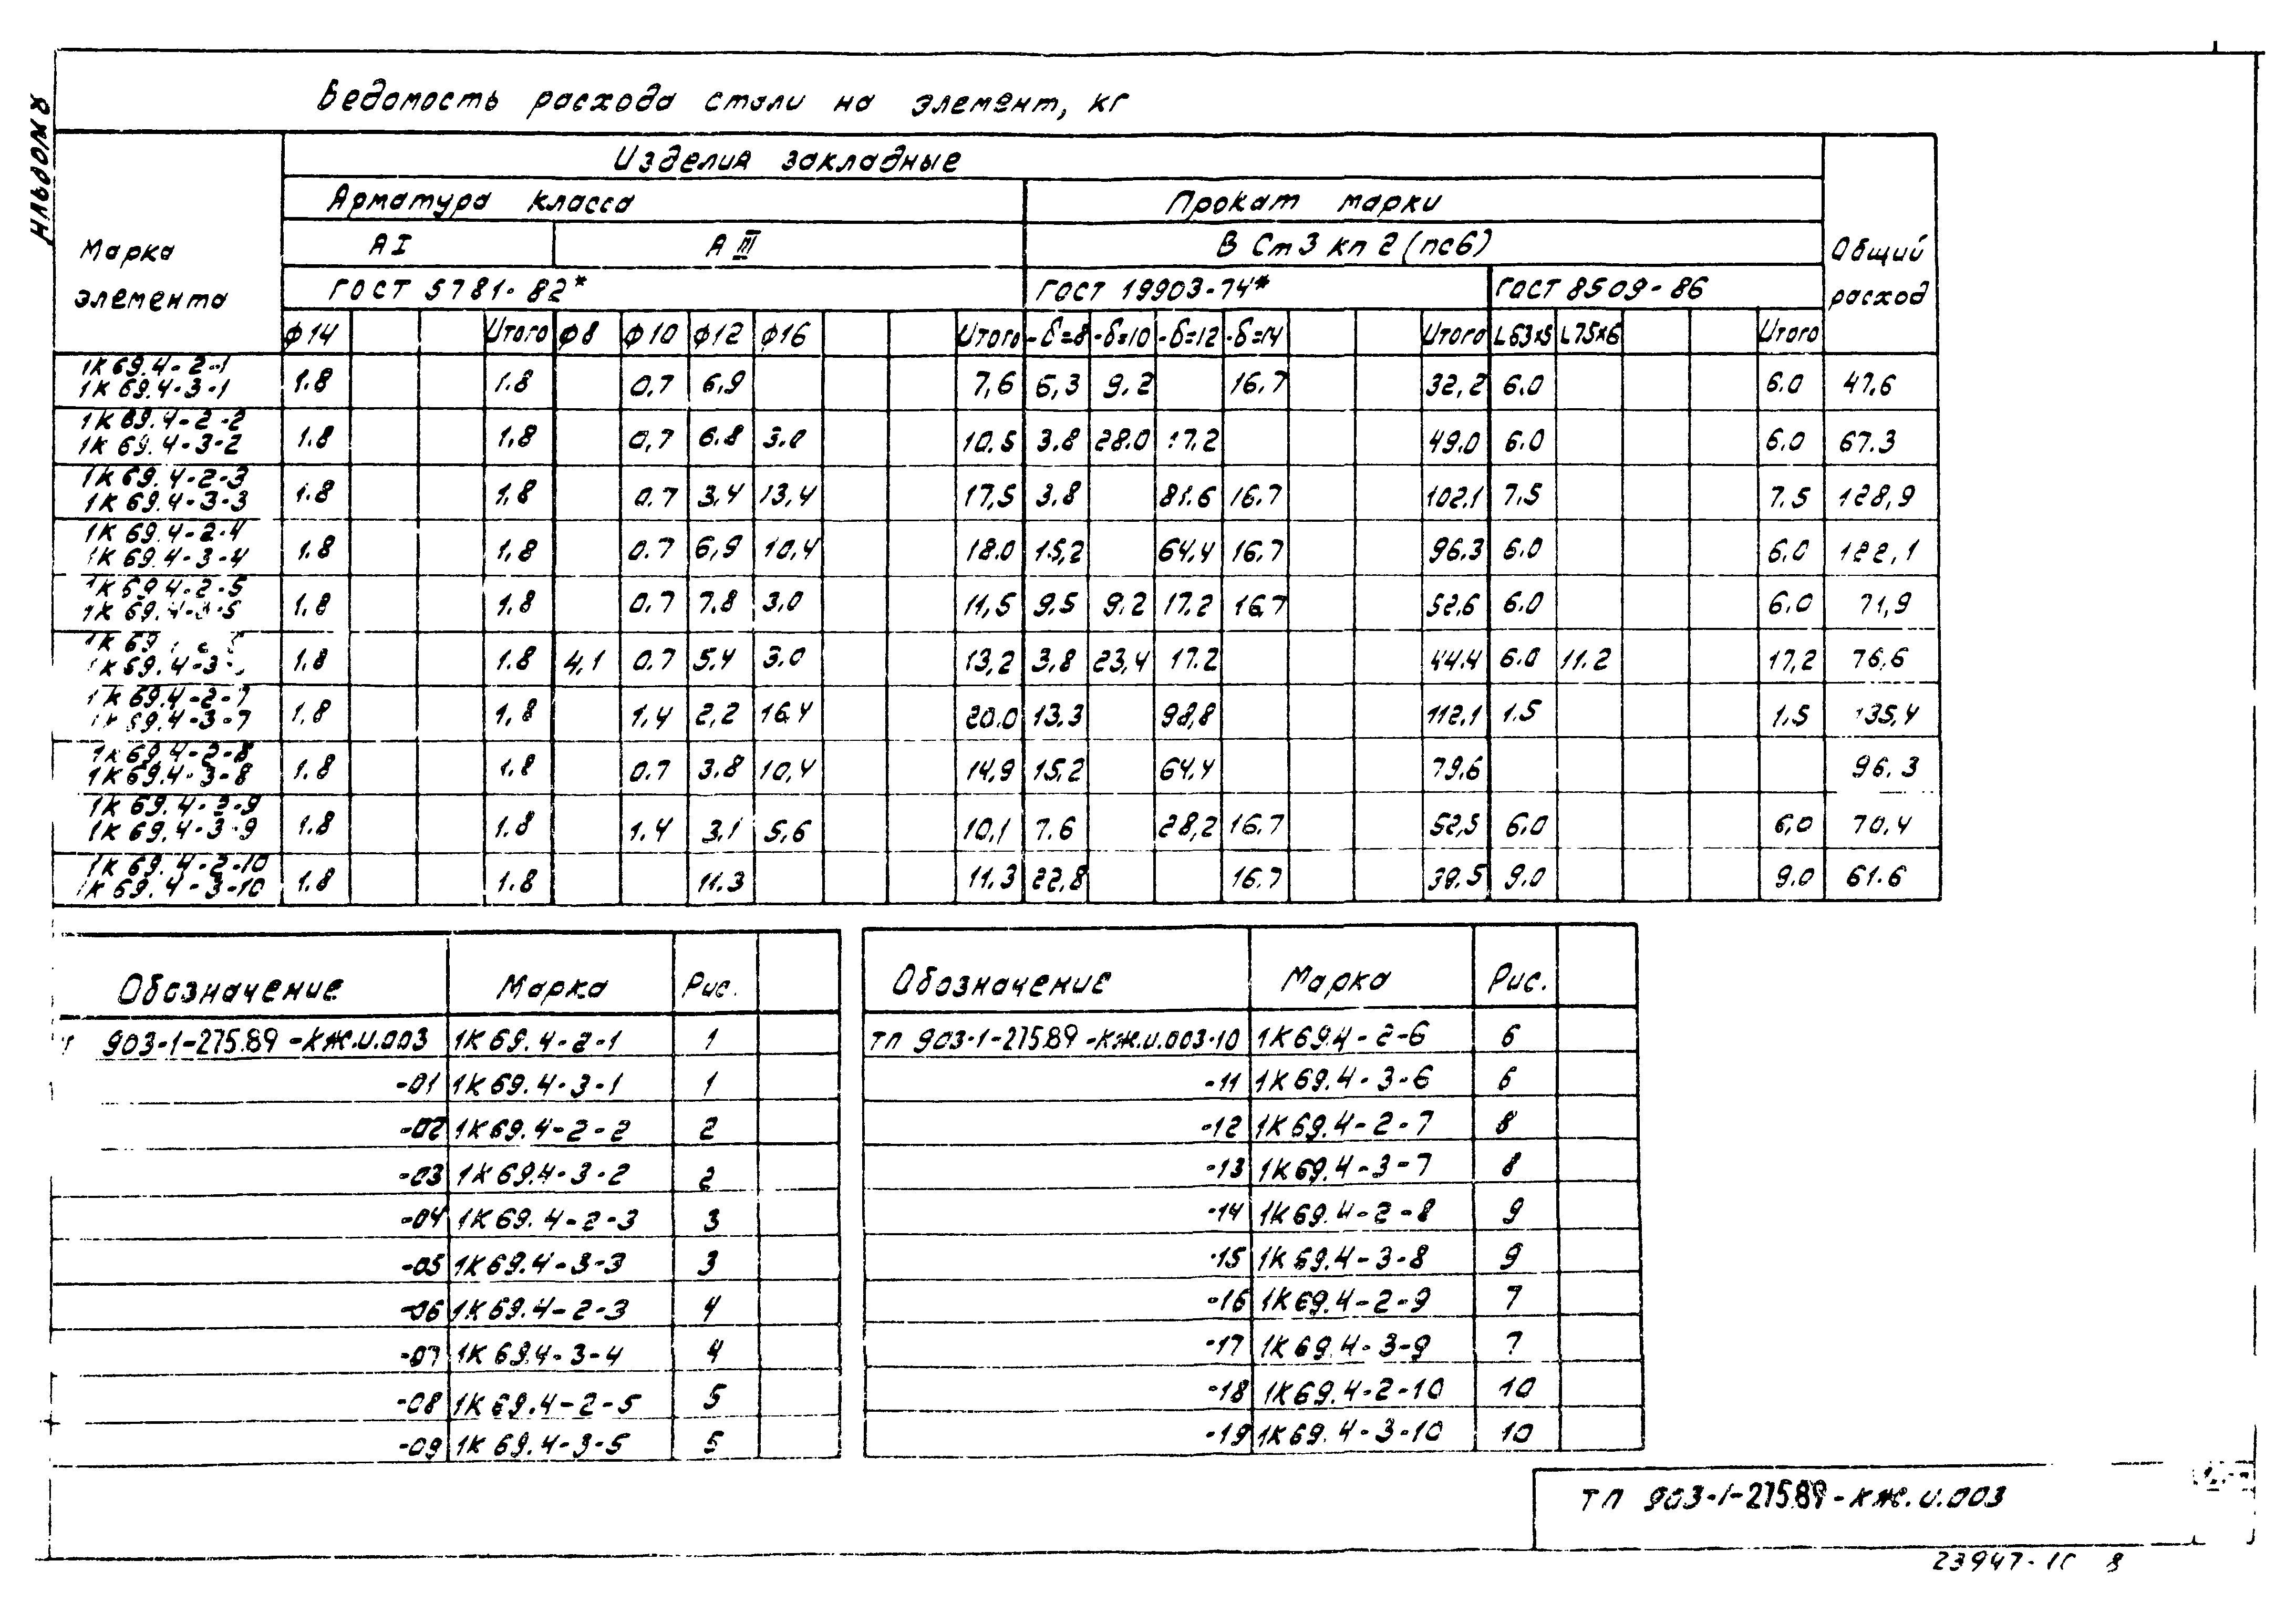 Альбом 8
Ведомость расхода стали на элемент, кг
Марка элемента
Изделия закладные
Общий расход
Арматура класса
Прокат марки
А I
А III
В Ст3 кп 2 (пс6)
ГОСТ 5781-82*
ГОСТ 19903-74*
ГОСТ 8509-86
Ф14 Итого Ф8 Ф10 Ф12 Ф16 Итого -δ=8 -δ=10 -δ=12 -δ=14 Итого L63x5 L75x6 Итого
1К 69.4-2-1
1К 69.4-3-1 1.8 1.8 0.7 6,9 7,6 6,3 9.2 16.7 32,2 6.0 6.0 47,6
1К 69.4-2-2
1К 69.4-3-2 1.8 1.8 0,7 6.8 3.0 10.5 3.8 28.0 17.2 49.0 6.0 6.0 67.3
1К 69.4-2-3
1К 69.4-3-3 1.8 1,8 0.7 3,4 13,4 17,5 3.8 81.6 16.7 102.1 7.5 7.5 128,9
1К 69.4-2-4
1К 69.4-3-4 1.8 1,8 0.7 6,9 10,4 18.0 15,2 64,4 16.7 96.3 6.0 6.0 122,1
1К 69.4-2-5
1К 69.4-3-5 1.8 1.8 0.7 7.8 3.0 11,5 9.5 9.2 17.2 16.7 52.6 6.0 6.0 71,9
1К 69
1К 69.4-3- 1.8 1.8 4,1 0.7 5.4 3.0 13,2 3,8 23,4 17.2 44.4 6.0 11.2 17,2 76,6
1К 69.4-2-7
1К 69.4-3-7 1.8 1,8 1,4 2,2 16.4 20.0 13.3 98,8 112.1 1.5 1.5 135,4
1К 69.4-2-8
1К 69.4-3-8 1.8 1.8 0.7 3.8 10,4 14,9 15,2 64.4 79.6 96.3
1К 69.4-2-9
1К 69.4-3-9 1.8 1.8 1.4 3.1 5,6 10,1 7.6 28,2 16.7 52,5 6.0 6,0 70,4
1К 69.4-2-10
1К 69.4-3-10 1.8 1.8 11.3 11.3 22,8 16.7 39.5 9.0 9.0 61.6
Обозначение Марка Рис.
903-1-275.89-КЖ.И.003 1К 69.4-2-1 1
-01 1К 69.4-3-1 1
-02 1К 69.4-2-2 2
-03 1К 69.4-3-2 2
-04 1К 69.4-2-3 3
-05 1К 69.4-3-3 3
-06 1К 69.4-2-3 4
-07 1К 69.4-3-4 4
-08 1К 69.4-2-5 5
-09 1К 69.4-3-5 5
Обозначение Марка Рис.
ТП 903-1-275.89-КЖ.И.003-10 1К 69.4-2-6 6
-11 1К 69.4-3-6 6
-12 1К 69.4-2-7 8
-13 1К 69.4-3-7 8
-14 1К 69.4-2-8 9
-15 1К 69.4-3-8 9
-16 1К 69.4-2-9 7
-17 1К 69.4-3-9 7
-18 1К 69.4-2-10 10
-19 1К 69.4-3-10 10
ТП 903-1-275.89-КЖ.И.003
23947- 8